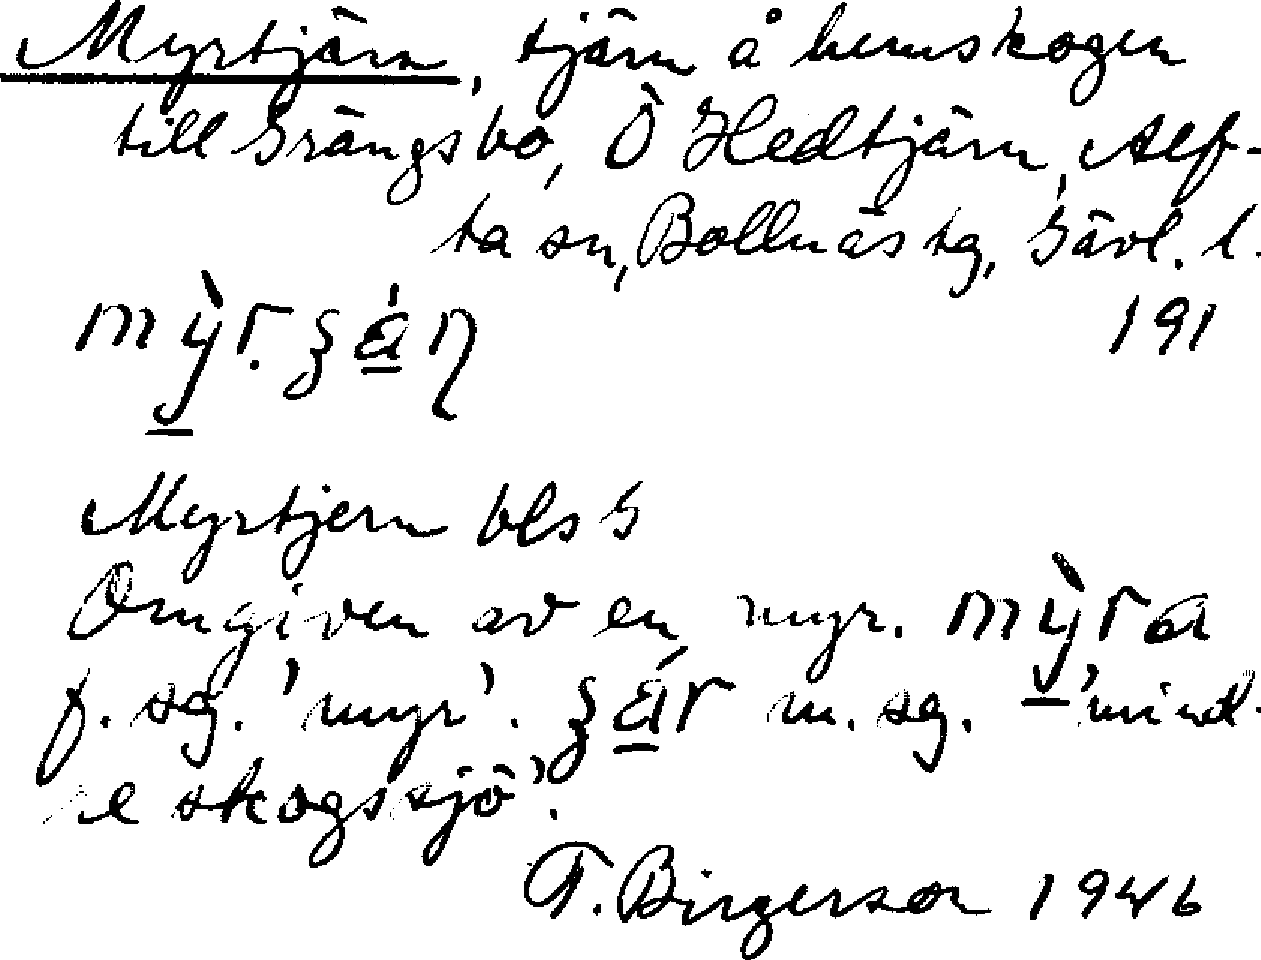 Myrtjärn, tjärn å hemskogen
till Grängsbo, Ö Hedtjärn, Alf-
ta sn, Bollnäs tg, Gävl. l.
191
Myrtjern bls G
Omgiven av en myr. mỳra
f. sg. 'myr'. m. sg. 'mind-
re skogssjö'.
T. Birgerson 1946